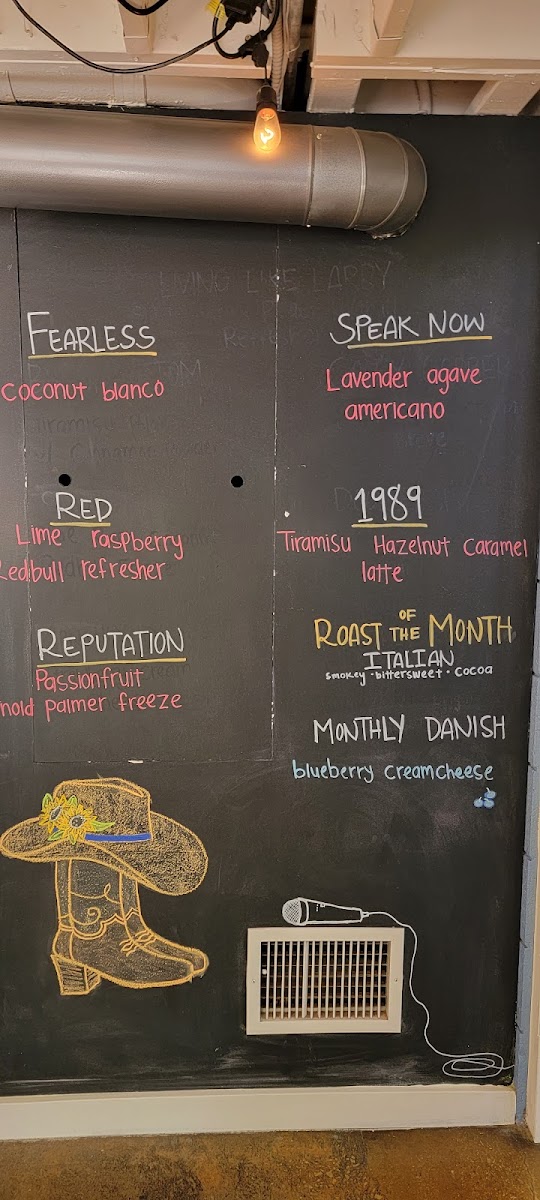 FEARLESS
coconut blanco
RED
Lime raspberry
Redbull refresher
REPUTATION
Passionfruit
nold palmer freeze
SPEAK NOW
Lavender agave
americano
1989
Tiramisu Hazelnut caramel
latte
ROAST OF THE MONTH
ITALIAN
smokey · bittersweet · cocoa
MONTHLY DANISH
blueberry creamcheese
LIVING LIKE LARRY